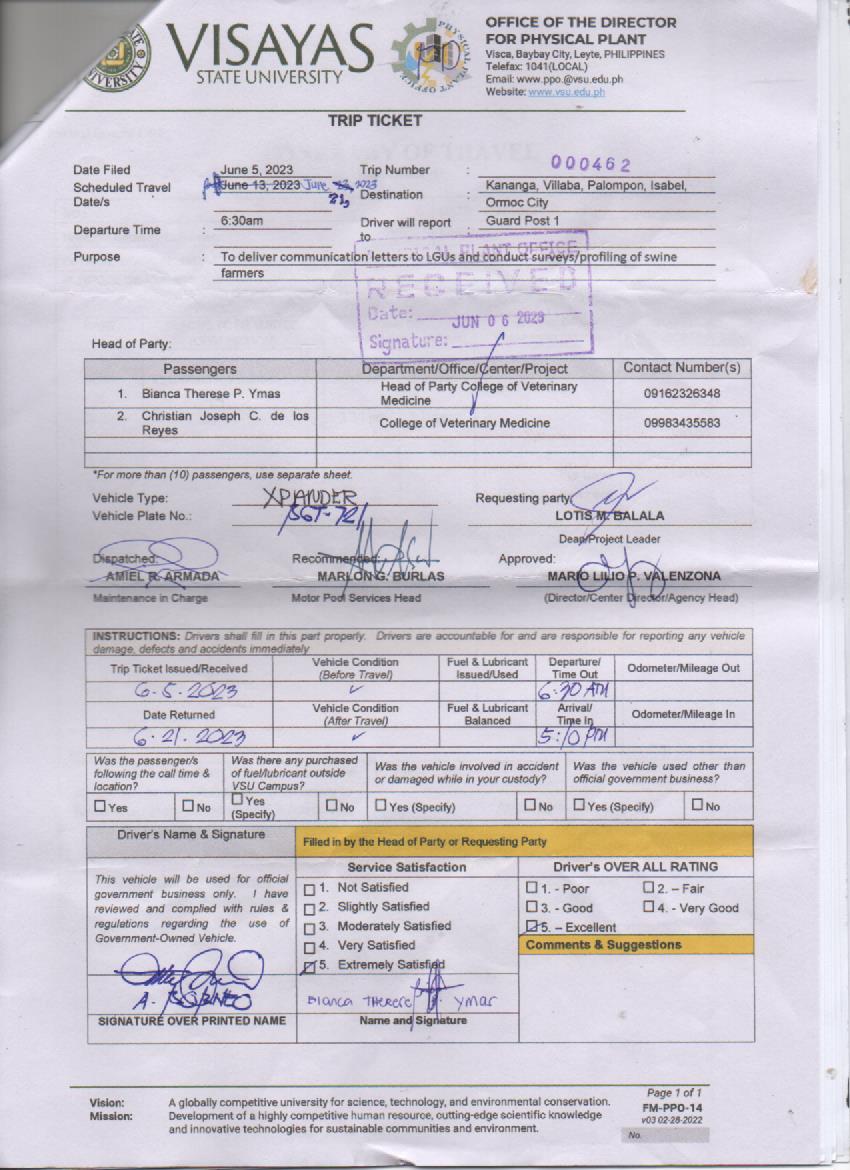 VISAYAS
STATE UNIVERSITY
OFFICE OF THE DIRECTOR
FOR PHYSICAL PLANT
Visca, Baybay City, Leyte, PHILIPPINES
Telefax: 1041(LOCAL)
Email: www.ppo.@vsu.edu.ph
Website: www.vsu.edu.ph
TRIP TICKET
Date Filed June 5, 2023 Trip Number : 000462
Scheduled Travel Date/s June 13, 2023 June 2023 21, Destination : Kananga, Villaba, Palompon, Isabel, Ormoc City
Departure Time : 6:30am Driver will report to : Guard Post 1
Purpose : To deliver communication letters to LGUs and conduct surveys/profiling of swine
farmers
PHYSICAL PLANT OFFICE
RECEIVED
Date: JUN 06 2023
Signature:
Head of Party:
Passengers Department/Office/Center/Project Contact Number(s)
1. Bianca Therese P. Ymas Head of Party College of Veterinary Medicine 09162326348
2. Christian Joseph C. de los Reyes College of Veterinary Medicine 09983435583
*For more than (10) passengers, use separate sheet.
Vehicle Type: XPANDER Requesting party
Vehicle Plate No.: LOTIS M. BALALA
Dean/Project Leader
Dispatched: Recommended: Approved:
AMIEL R. ARMADA MARLON G. BURLAS MARIO LILIO P. VALENZONA
Maintenance in Charge Motor Pool Services Head (Director/Center Director/Agency Head)
INSTRUCTIONS: Drivers shall fill in this part properly. Drivers are accountable for and are responsible for reporting any vehicle
damage, defects and accidents immediately
Trip Ticket Issued/Received Vehicle Condition (Before Travel) Fuel & Lubricant Issued/Used Departure/ Time Out Odometer/Mileage Out
6-5-2023 6:30 AM
Date Returned Vehicle Condition (After Travel) Fuel & Lubricant Balanced Arrival/ Time In Odometer/Mileage In
6-21-2023 5:10 PM
Was the passenger/s following the call time & location? Was there any purchased of fuel/lubricant outside VSU Campus? Was the vehicle involved in accident or damaged while in your custody? Was the vehicle used other than official government business?
Yes No Yes (Specify) No Yes (Specify) No Yes (Specify) No
Driver's Name & Signature Filled in by the Head of Party or Requesting Party
This vehicle will be used for official
government business only. I have
reviewed and complied with rules &
regulations regarding the use of
Government-Owned Vehicle.
SIGNATURE OVER PRINTED NAME
Service Satisfaction
1. Not Satisfied
2. Slightly Satisfied
3. Moderately Satisfied
4. Very Satisfied
5. Extremely Satisfied
Bianca Therese P. Ymas
Name and Signature
Driver's OVER ALL RATING
1. - Poor 2. – Fair
3. - Good 4. - Very Good
5. – Excellent
Comments & Suggestions
Vision: A globally competitive university for science, technology, and environmental conservation.
Mission: Development of a highly competitive human resource, cutting-edge scientific knowledge
and innovative technologies for sustainable communities and environment.
Page 1 of 1
FM-PPO-14
v03 02-28-2022
No.